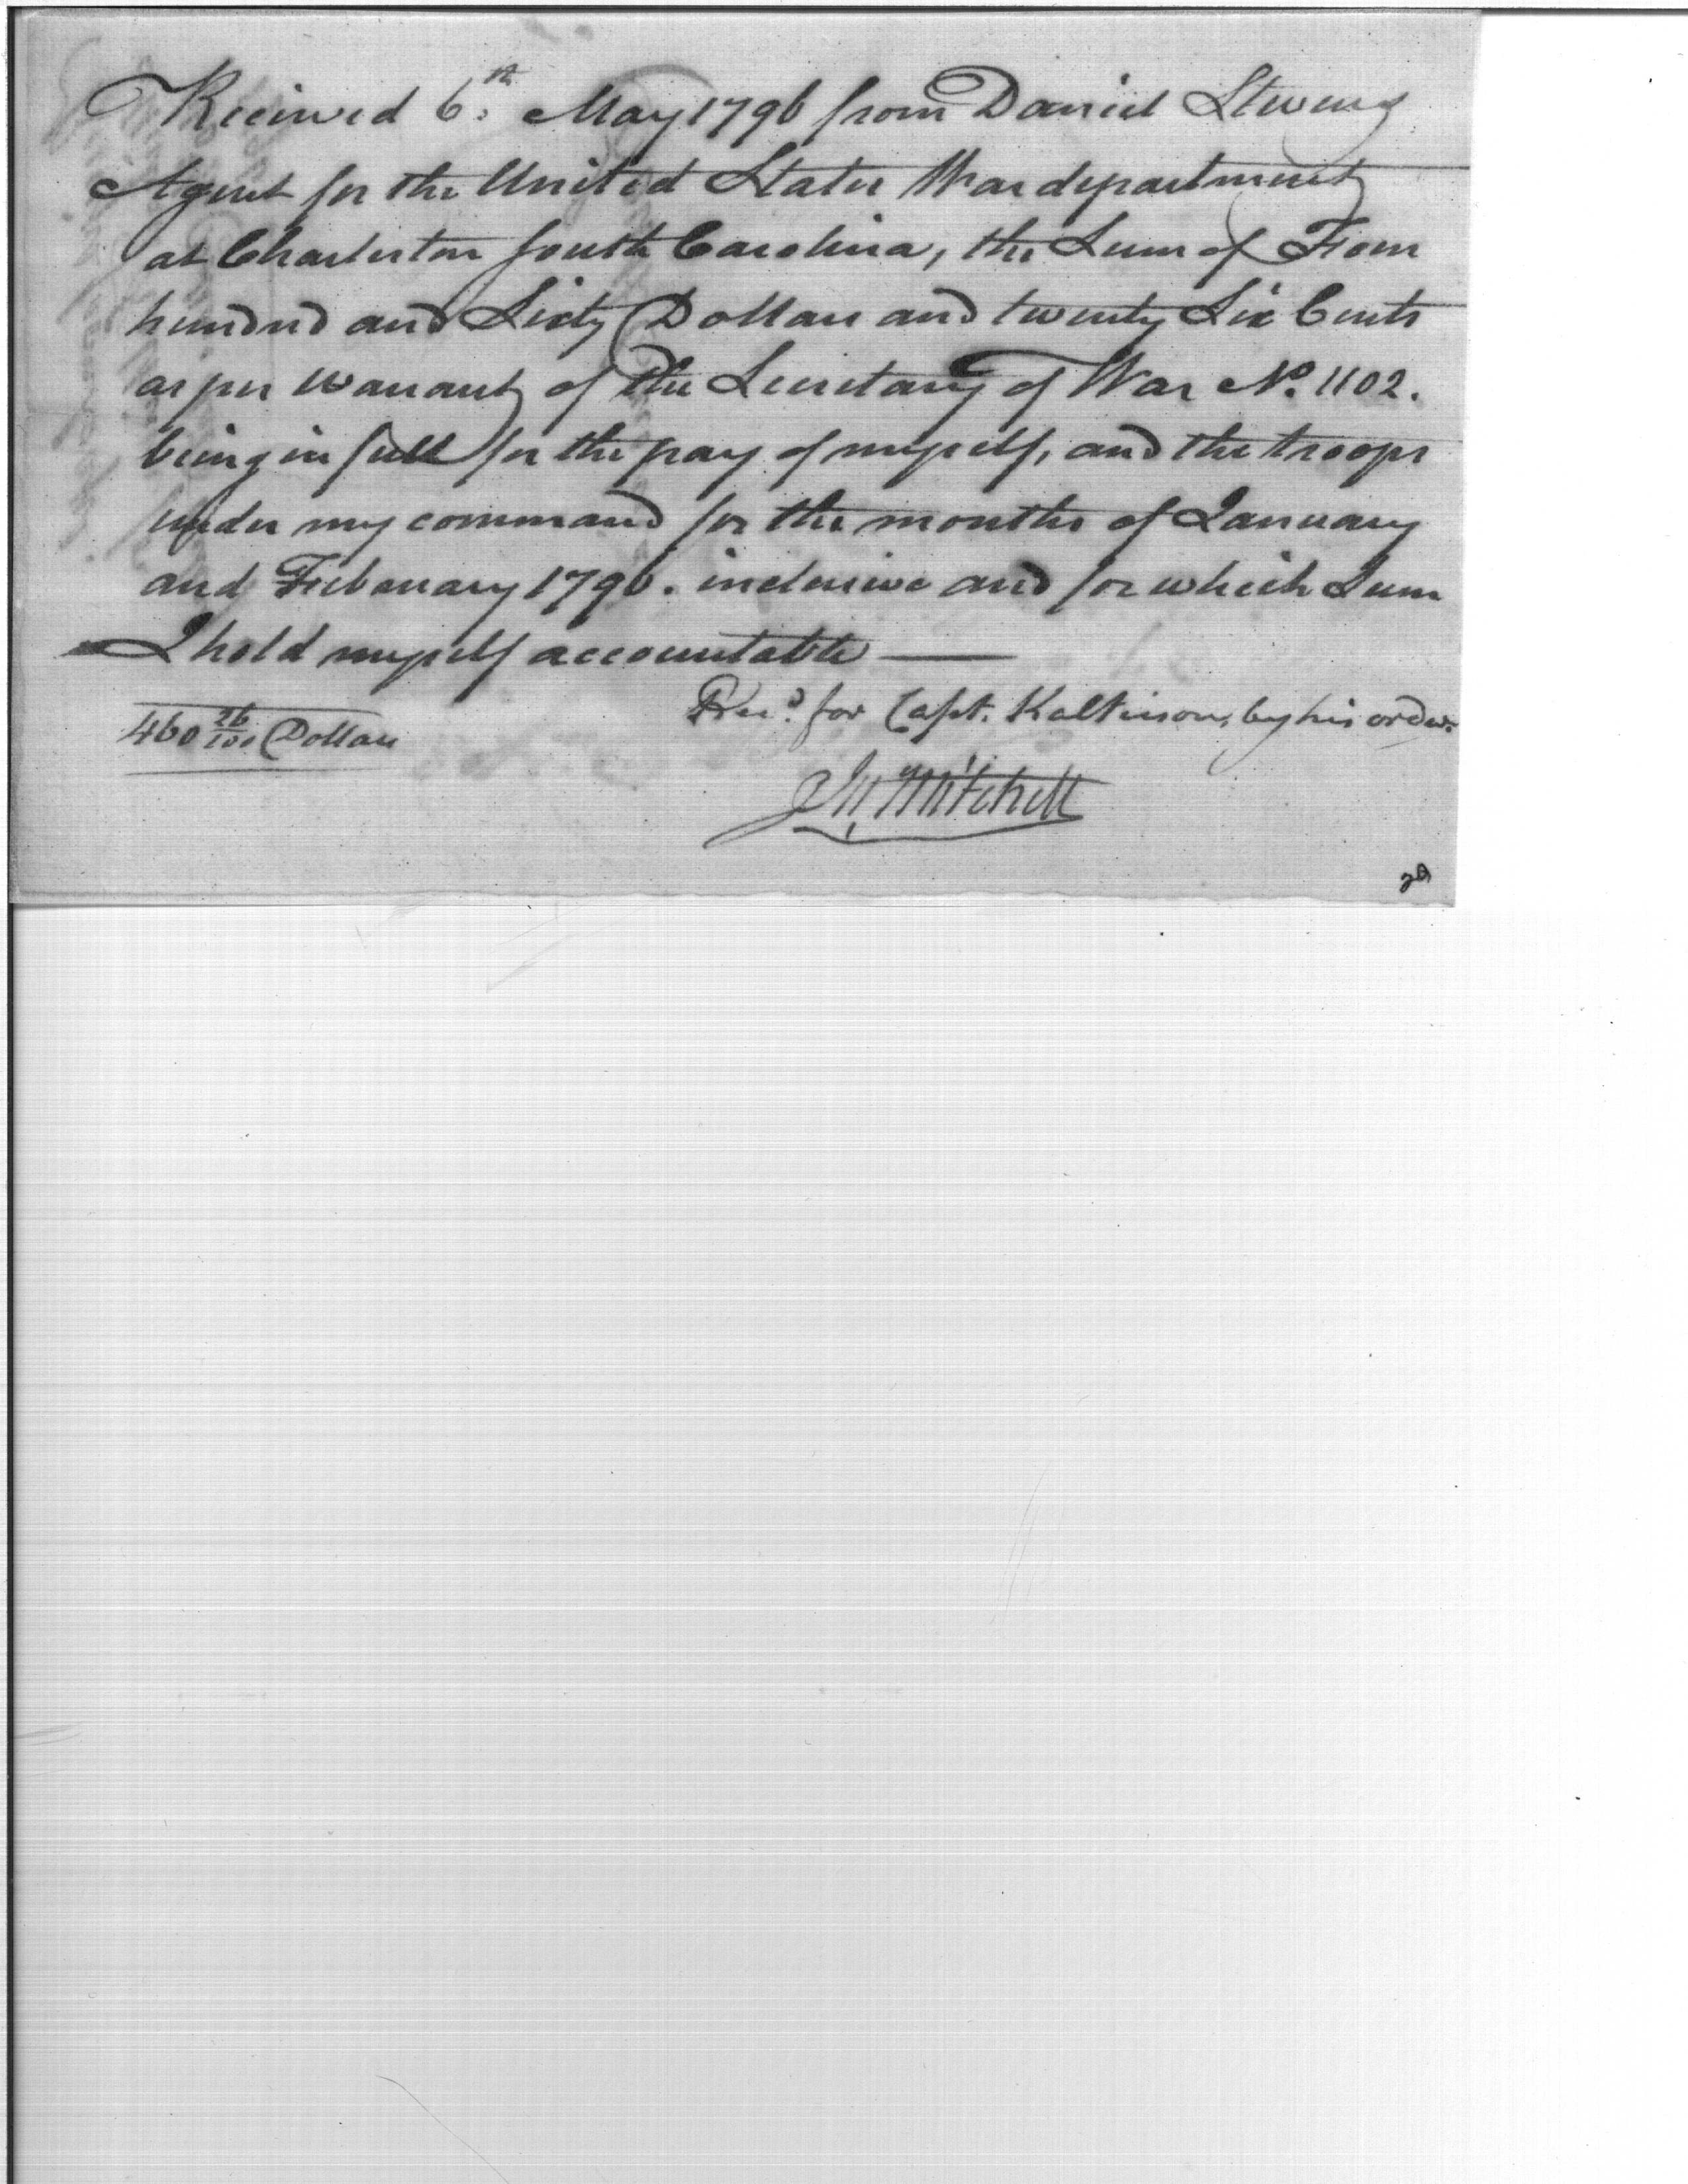 Received 6th. May 1796 from Daniel Stevens
Agent for the United States War department
at Charleston South Carolina, the Sum of Four
hundred and Sixty Dollars and twenty Six Cents
as per Warrant of the Secretary of War No. 1102.
being in full for the pay of myself, and the troops
under my command for the months of January
and February 1796. inclusive and for which Sum
I hold myself accountable —
Recd. for Capt. Kalteisons, by his order.
460 26/100 Dollars
Jn Mitchell